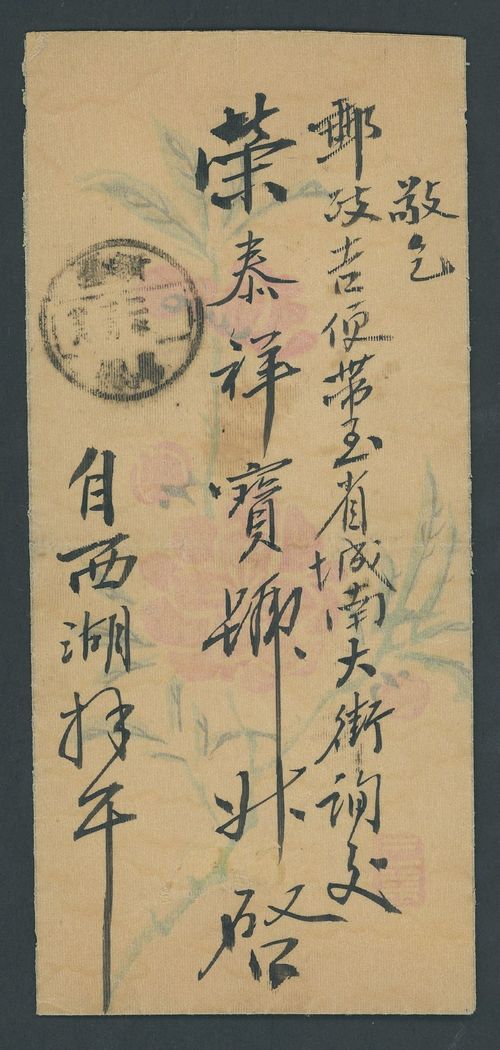 敬乞
郵政吉便帶至省城南大街詢交
榮泰祥寶號升啓
自西湖拜